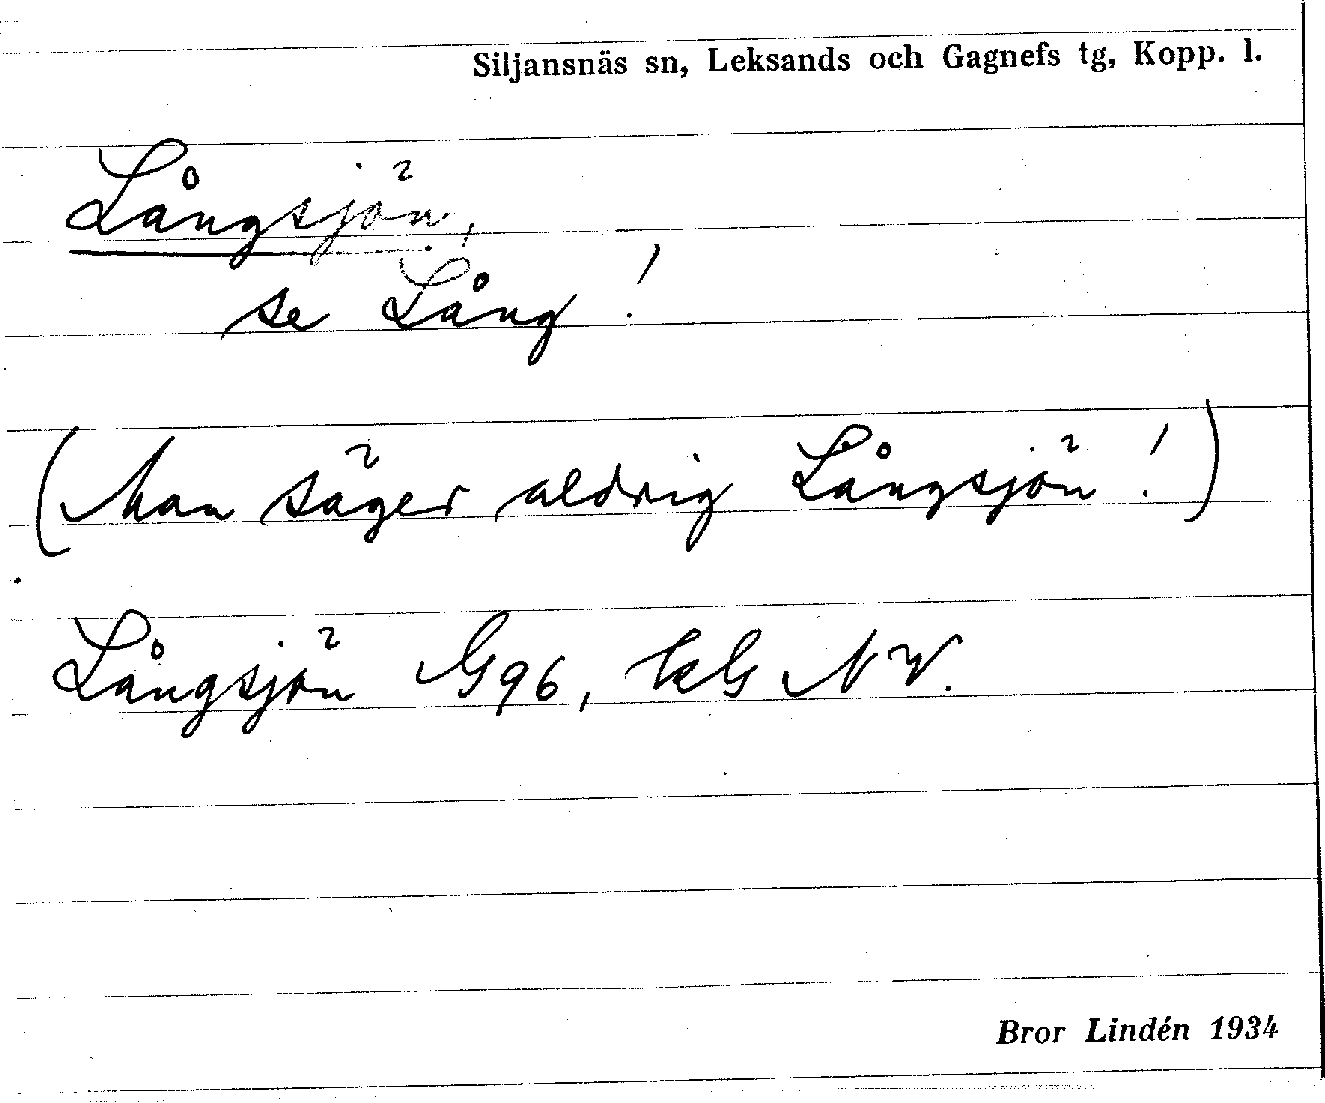 Siljansnäs sn, Leksands och Gagnefs tg, Kopp. l.
Långsjön,
se Lång!
(Man säger aldrig Långsjön!)
Långsjön G96, kbl NV.
Bror Lindén 1934